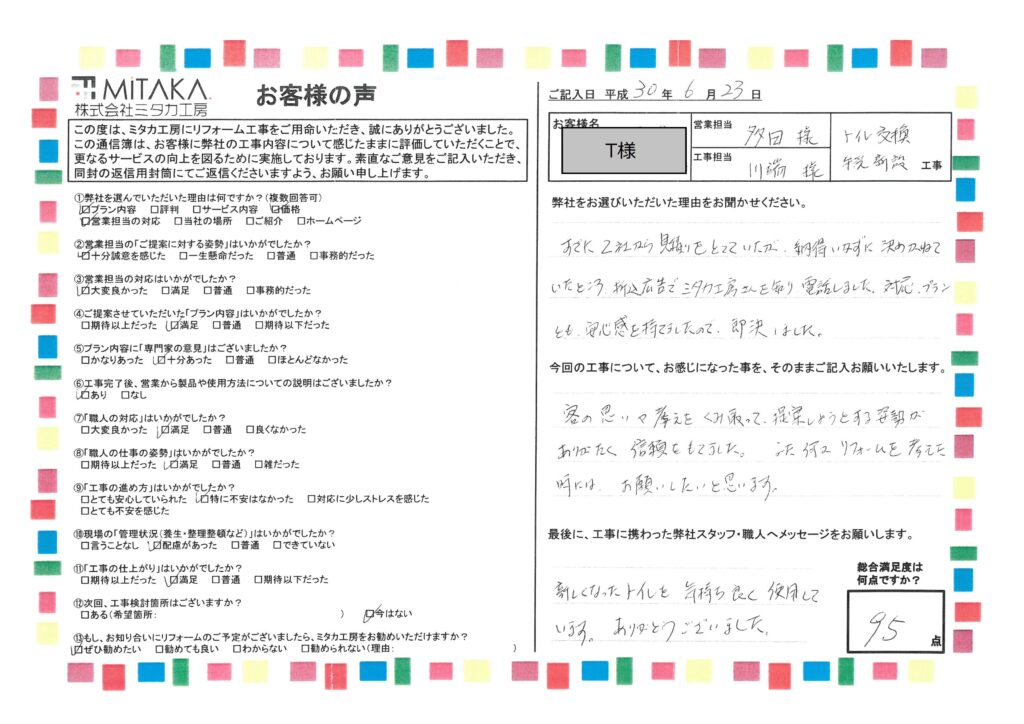 MiTAKA
株式会社ミタカ工房
お客様の声
この度は、ミタカ工房にリフォーム工事をご用命いただき、誠にありがとうございました。
この通信簿は、お客様に弊社の工事内容について感じたままに評価していただくことで、
更なるサービスの向上を図るために実施しております。素直なご意見をご記入いただき、
同封の返信用封筒にてご返信くださいますよう、お願い申し上げます。
①弊社を選んでいただいた理由は何ですか?(複数回答可)
☑プラン内容 □評判 □サービス内容 ☑価格
☑営業担当の対応 □当社の場所 □ご紹介 □ホームページ
②営業担当の「ご提案に対する姿勢」はいかがでしたか?
☑十分誠意を感じた □一生懸命だった □普通 □事務的だった
③営業担当の対応はいかがでしたか?
☑大変良かった □満足 □普通 □事務的だった
④ご提案させていただいた「プラン内容」はいかがでしたか?
□期待以上だった ☑満足 □普通 □期待以下だった
⑤プラン内容に「専門家の意見」はございましたか?
□かなりあった ☑十分あった □普通 □ほとんどなかった
⑥工事完了後、営業から製品や使用方法についての説明はございましたか?
☑あり □なし
⑦「職人の対応」はいかがでしたか?
□大変良かった ☑満足 □普通 □良くなかった
⑧「職人の仕事の姿勢」はいかがでしたか?
□期待以上だった ☑満足 □普通 □雑だった
⑨「工事の進め方」はいかがでしたか?
□とても安心していられた ☑特に不安はなかった □対応に少しストレスを感じた
□とても不安を感じた
⑩現場の「管理状況(養生・整理整頓など)」はいかがでしたか?
□言うことなし ☑配慮があった □普通 □できていない
⑪「工事の仕上がり」はいかがでしたか?
□期待以上だった ☑満足 □普通 □期待以下だった
⑫次回、工事検討箇所はございますか?
□ある(希望箇所: ) ☑今はない
⑬もし、お知り合いにリフォームのご予定がございましたら、ミタカ工房をお勧めいただけますか?
☑ぜひ勧めたい □勧めても良い □わからない □勧められない(理由: )
ご記入日 平成 30 年 6 月 23 日
お客様名
T様
営業担当 多田 様
工事担当 川端 様
トイレ交換
新設 工事
弊社をお選びいただいた理由をお聞かせください。
すでに2社から見積りをとっていたが、納得いかずに決めかねて
いたところ、折込広告でミタカ工房さんを知り電話しました。対応、プラン
とも、安心感を持てましたので、即決しました。
今回の工事について、お感じになった事を、そのままご記入お願いいたします。
客の思いや考えをくみ取って、提案しようとする姿勢が
ありがたく信頼をもてました。また何かリフォームを考えた
時には、お願いしたいと思います。
最後に、工事に携わった弊社スタッフ・職人へメッセージをお願いします。
新しくなったトイレを気持ち良く使用して
います。ありがとうございました。
総合満足度は
何点ですか?
95 点